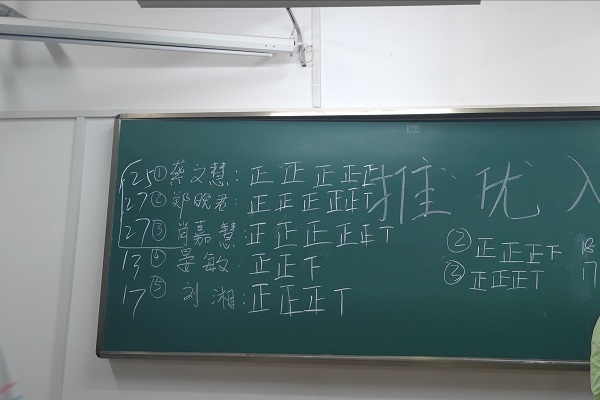 25 ① 蔡文慧: 正 正 正 正 正
27 ② 郑晚君: 正 正 正 正 正 T
27 ③ 肖嘉慧: 正 正 正 正 正 T
13 ④ 晏敏: 正 正 下
17 ⑤ 刘湘: 正 正 正 T
推优入
② 正 正 正 下 18
③ 正 正 正 T 17